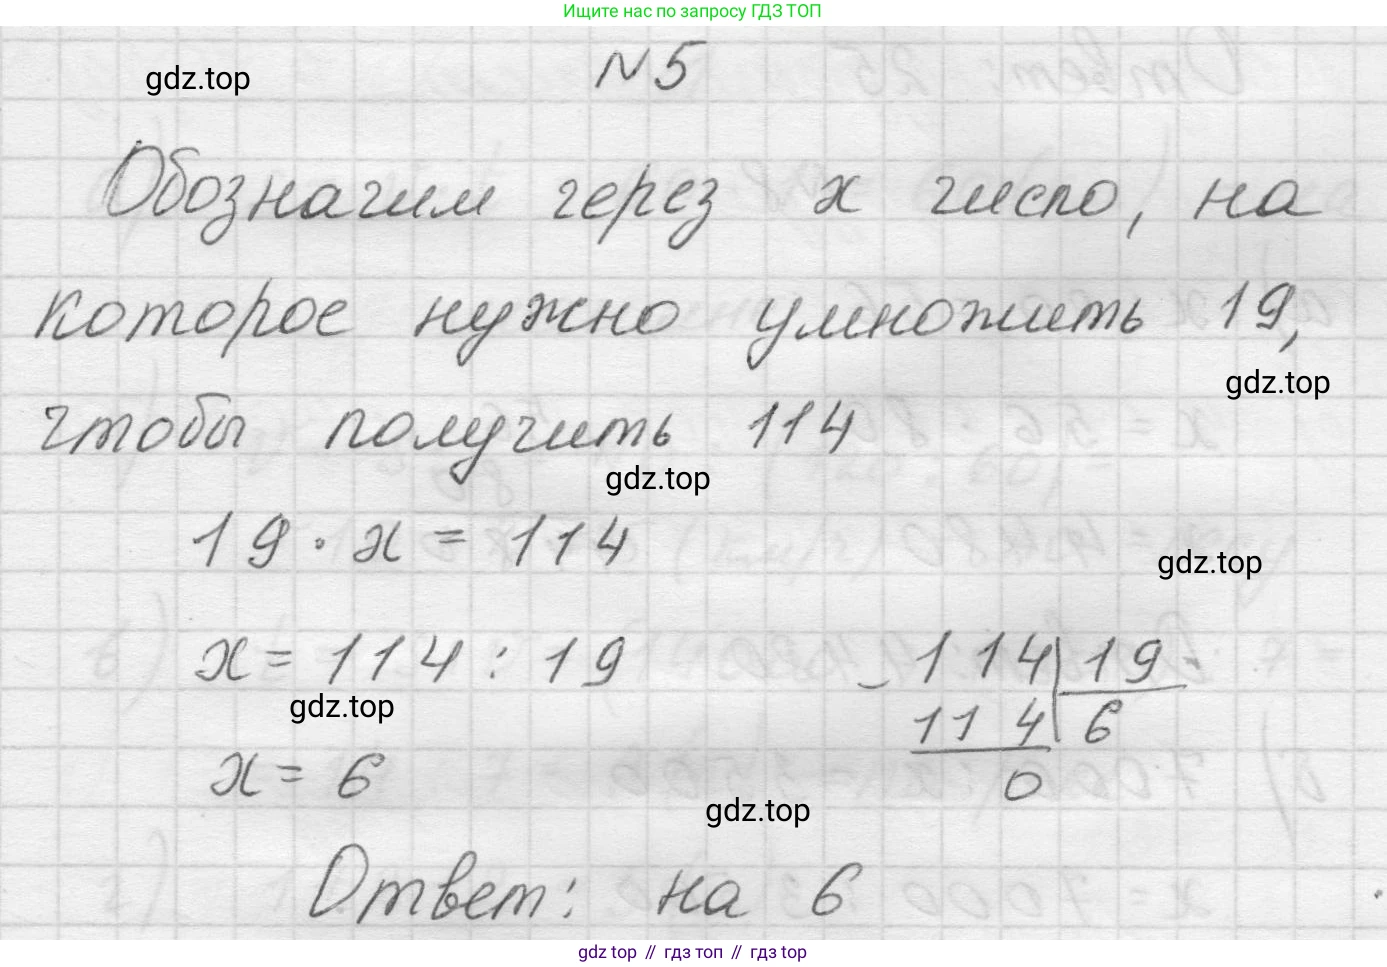 Ищите нас по запросу ГДЗ ТОП
gdz.top
№5
Обозначим через x число, на
которое нужно умножить 19,
gdz.top
чтобы получить 114
gdz.top
19 · x = 114
gdz.top
x = 114 : 19
- 114 | 19
gdz.top
114 | 6
x = 6
0
gdz.top
Ответ: на 6
gdz top // гдз топ // гдз top